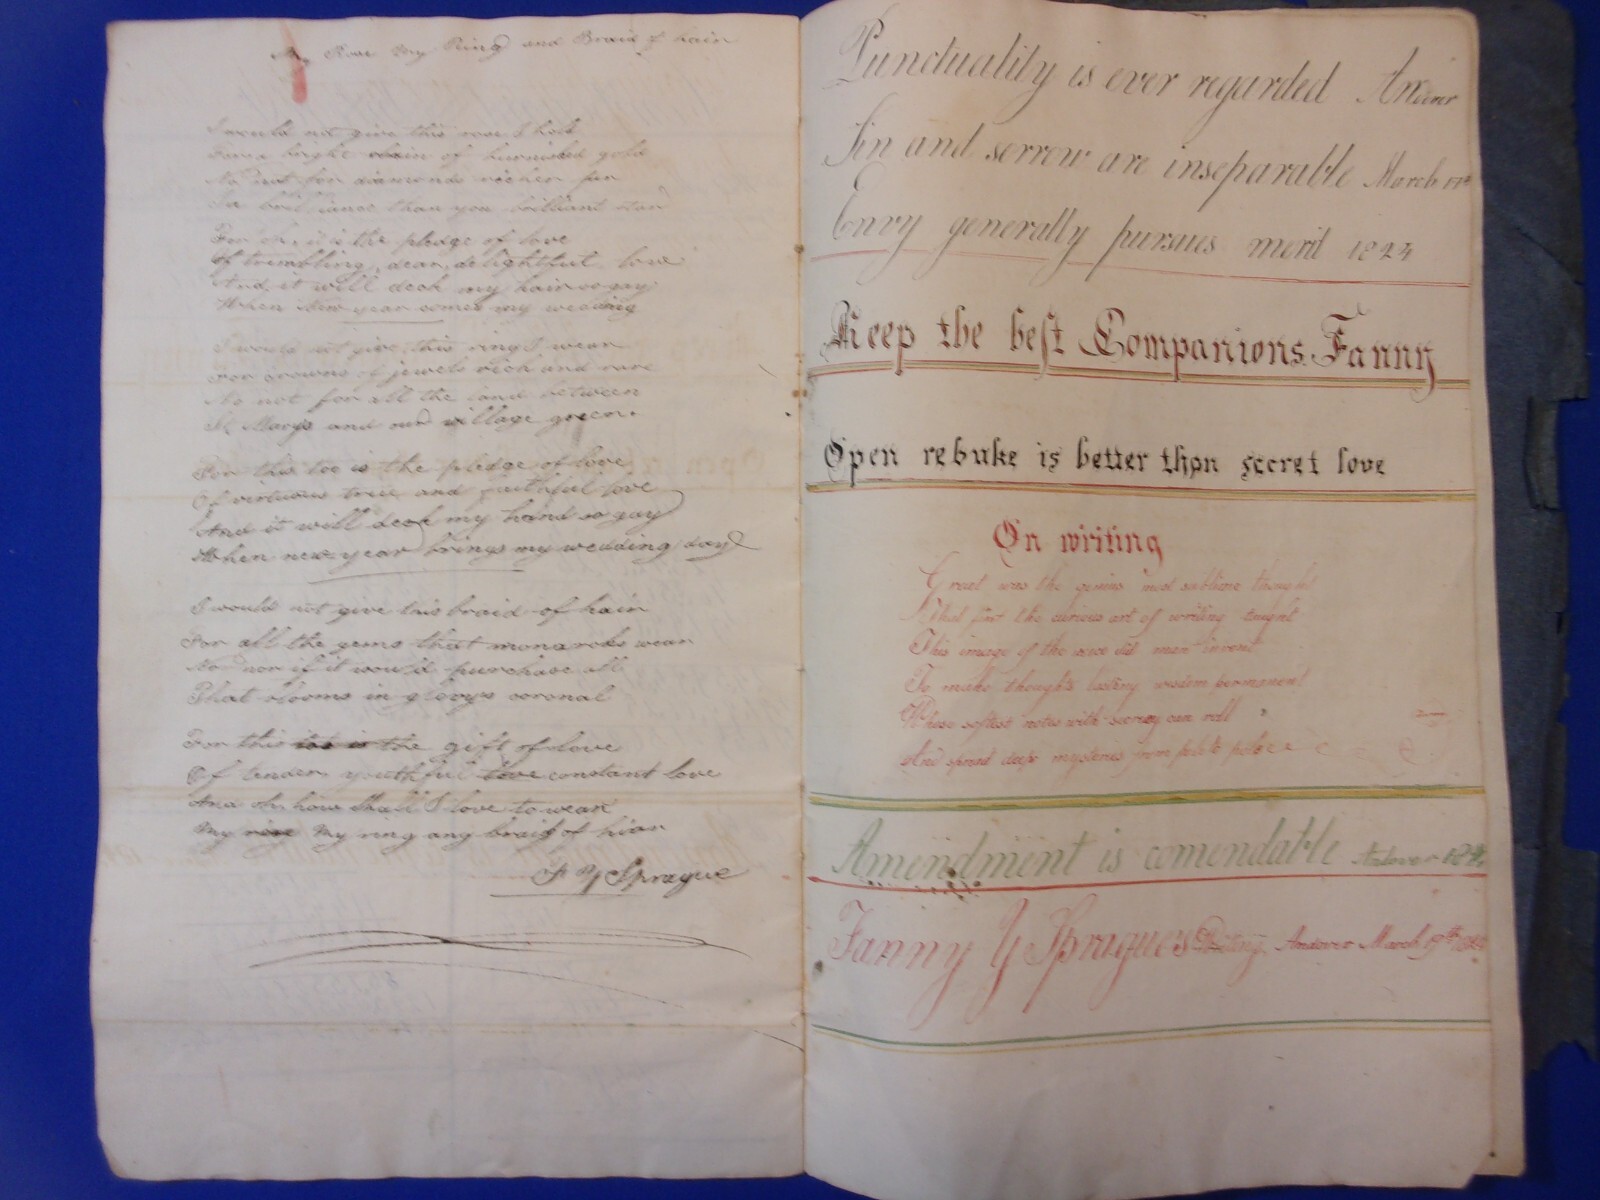 My Rose My Ring and Braid of hair
I would not give this rose I hold
For a bright chain of burnished gold
No not for diamonds richer far
In briliance than yon brilliant star
For oh, it is the pledge of love
Of trembling, dear, delightful love
And it will deck my hair so gay
When New year comes my wedding
I would not give this ring I wear
For crowns of jewels rich and rare
No not for all the land between
St Marys and our village green.
For this too is the pledge of love
Of virtuous true and faithful love
And it will deck my hand so gay
When new year brings my wedding day
I would not give this braid of hair
For all the gems that monarchs wear
No nor if it would purchase all
That blooms in glorys coronal
For this too is the gift of love
Of tender youthful love constant love
And oh how shall I love to wear
My rose My ring any braid of hian
F Y Sprague
Punctuality is ever regarded Andover
Sin and sorrow are inseparable March 17th
Envy generally pursues merit 1824
Keep the best Companions. Fanny
Open rebuke is better than secret love
On writing
Great was the genius most sublime thought
That first the curious art of writing taught
This image of the voice did man invent
To make thoughts lasting wisdom permanent
Whose softest notes with secresy can roll
And spread deep mysteries from pole to pole
Amendment is comendable Andover
Fanny Y Sprague's Writing. Andover March 19th